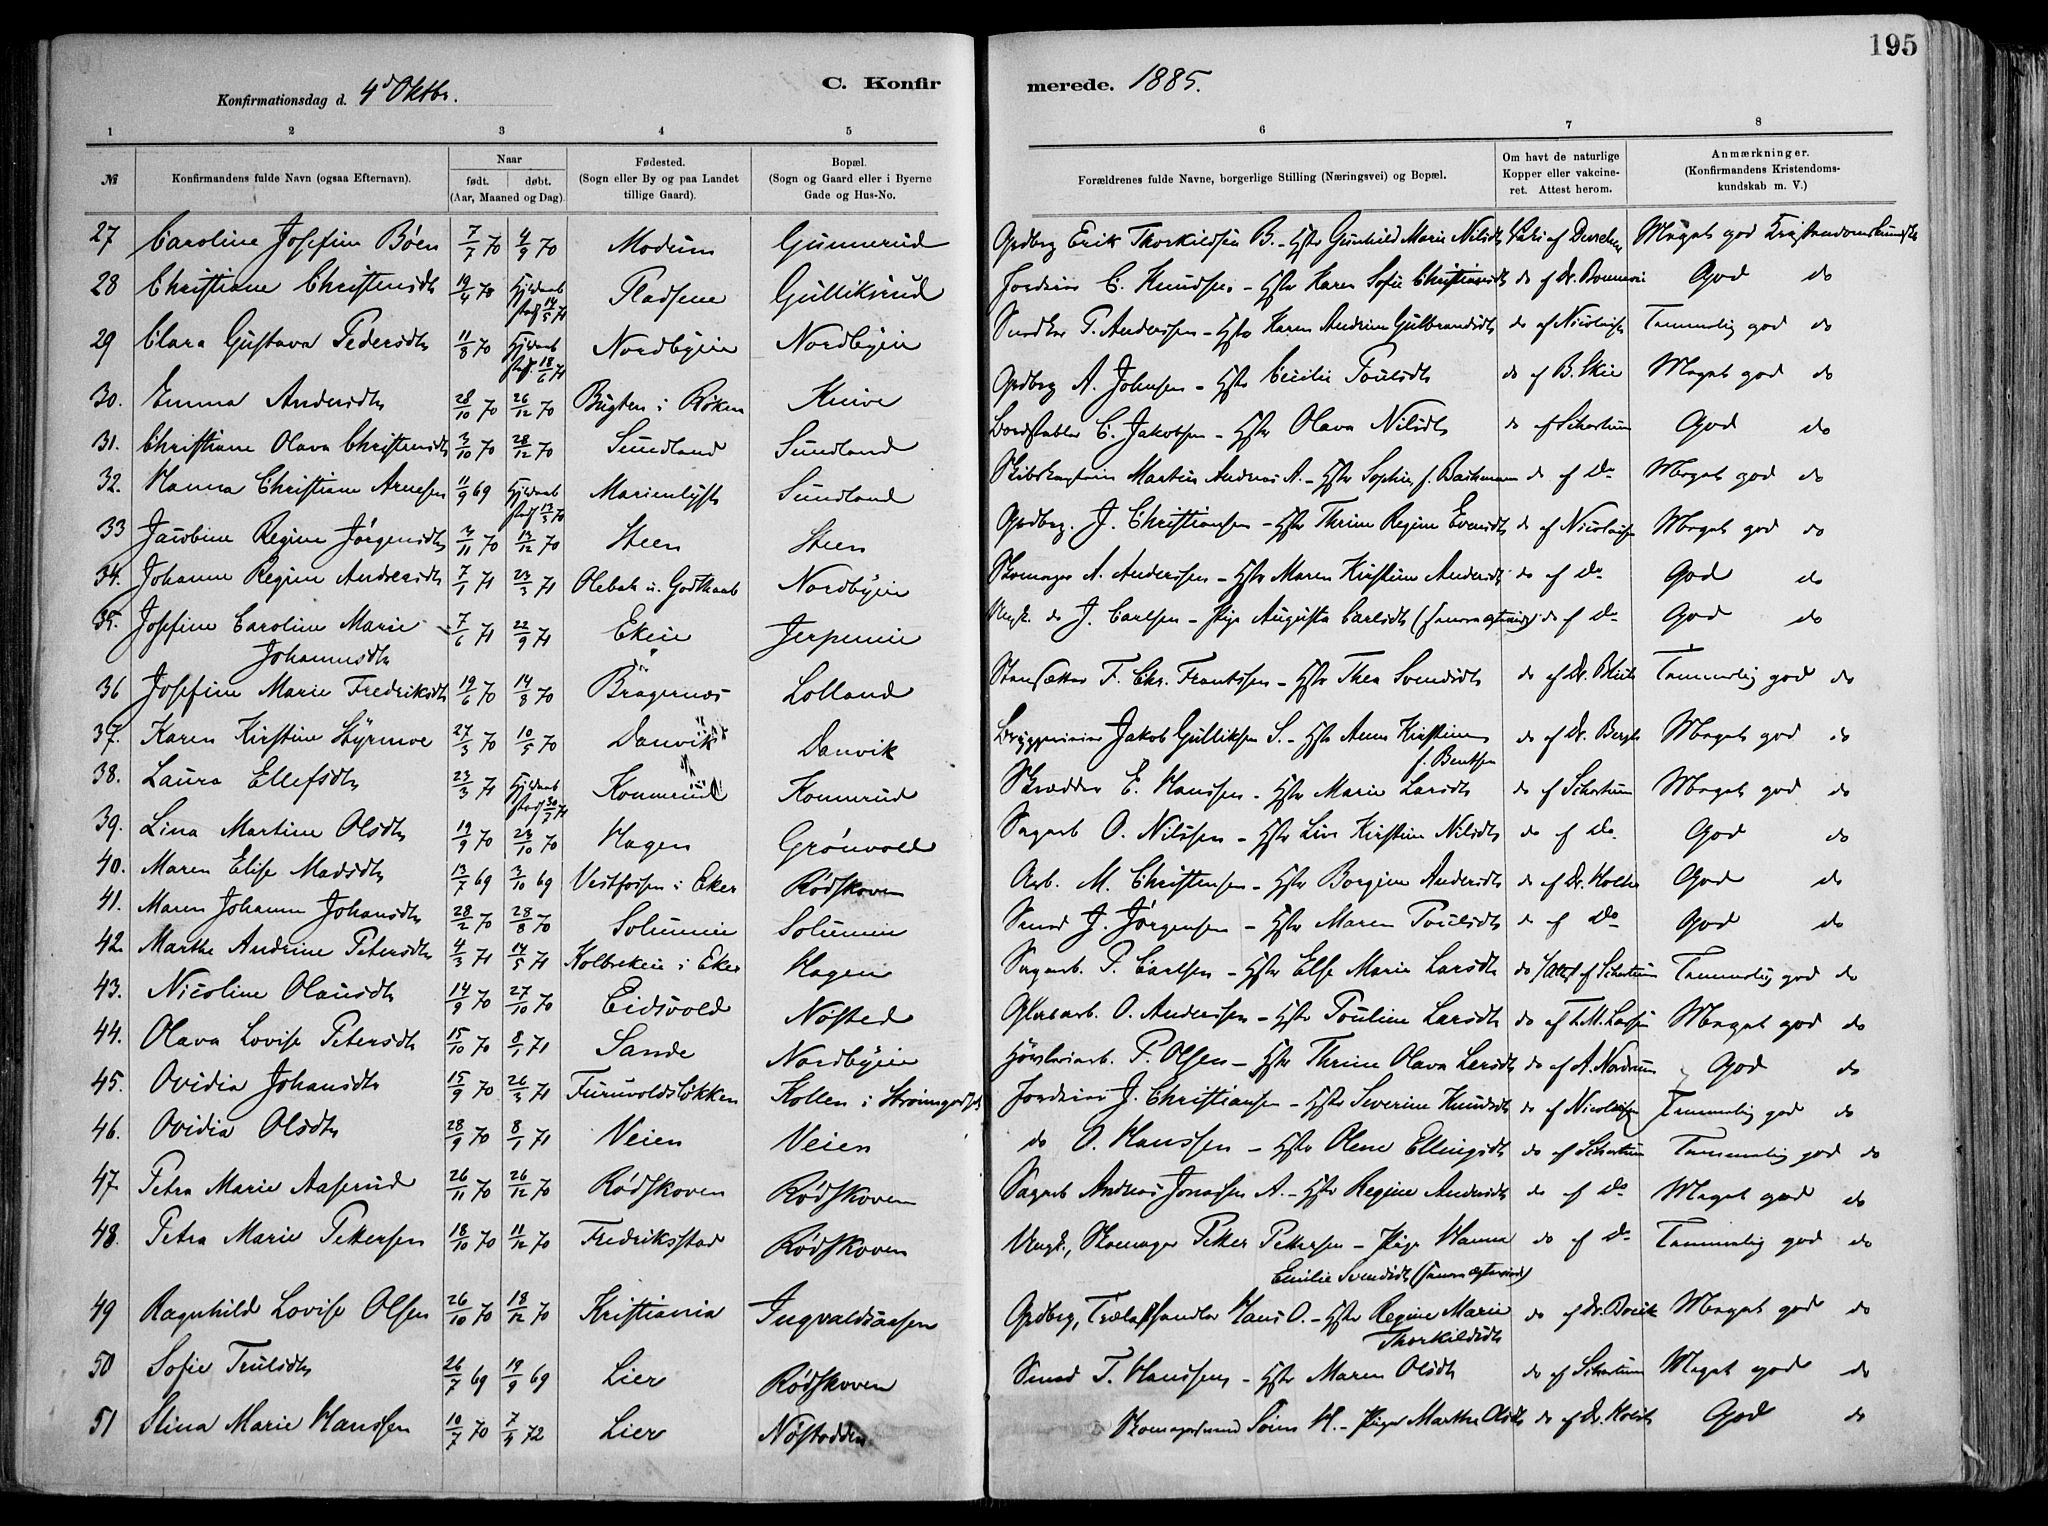 195
Konfirmationsdag d. 4d Oktbr. C. Konfir merede. 1885.
1 2 3 4 5 6 7 8
№ Konfirmandens fulde Navn (ogsaa Efternavn). Naar født. døbt. (Aar, Maaned og Dag). Fødested. (Sogn eller By og paa Landet tillige Gaard). Bopæl. (Sogn og Gaard eller i Byerne Gade og Hus-No. Forældrenes fulde Navne, borgerlige Stilling (Næringsvei) og Bopæl. Om havt de naturlige Kopper eller vakcineret. Attest herom. Anmærkninger. (Konfirmandens Kristendomskundskab m. V.)
27 Caroline Josefine Bøen 7/7 70 4/9 70 Modum Gunnerud Grdbrg Erik Thorkildsen B. - Hstr Gunhild Marie Nilsdt Meget god Kristendomskundsk
28 Christiane Christensdt 19/4 70 14/5 71 Pladsene Gulliksrud C. Knudsen - Hstr Karen Sofie Christiansdt do af Dr. God do
29 Clara Gustava Pedersdt 11/8 70 18/6 71 Nordbyen Nordbyen P. Anderssen - Hstr Karen Andrine Gulbrandsdt do af Nicolaisen Temmelig god do
30. Emma Andersdt 28/10 70 26/12 70 Bugten i Røken Knive Grdbrg A. Johnsen - Hstr Cecilie Poulsdt do af B. Skie Meget god do
31. Christiane Olava Christensdt 3/10 70 28/12 70 Sundland Sundland Bordstabler C. Jakobsen - Hstr Olava Nilsdt do af Schartum God do
32. Hanna Christiane Arnesen 11/9 69 13/3 70 Marienlyst Sundland Skibskaptein Martin Andreas A. - Hstr Sophie f. Bachmann do af Do Meget god do
33 Jacobine Regine Jørgensdt 3/11 70 13/12 70 Steen Steen Grdbrg. J. Christiansen - Hstr Thrine Regine Evensdt do af Nicolaisen Meget god do
34. Johanne Regine Andersdt 7/1 71 23/3 71 Olebak u. Godthaab Nordbyen Skomager A. Anderssen - Hstr Maren Kirstine Andersdt do af Do God do
35. Josefine Caroline Marie Johannesdt 7/6 71 22/9 71 Ekeie Jerpenie Ungk. do J. Carlsen - Pige Augusta Carlsdt do af Do God do
36 Josefine Marie Fredriksdt 19/6 70 14/8 70 Bragernæs Lolland F. Chr. Frantssen - Hstr Thea Svendsdt do af Dr. Temmelig god do
37. Karen Kirstine Styrmoe 27/3 70 10/5 70 Danvik Danvik Jakob Gulliksen S. - Hstr Anne Kirstine f. Bentsen do af Dr. Bergh Meget god do
38. Laura Ellefsdt 23/3 71 30/7 71 Konnerud Konnerud Skrædder E. Hanssen - Hstr Marie Larsdt do af Schartum Meget god do
39. Lina Martine Olsdt 19/9 70 23/10 70 Hagen Grønvold Sagarb O. Nilssen - Hstr Live Kirstine Nilsdt do af Do. God do
40. Maren Elise Madsdt 13/7 69 3/10 69 Vestfossen i Eker Rødskoven Arb. M. Christensen - Hstr Borgine Andersdt do af Dr. Holte God do
41. Maren Johanne Johansdt 28/2 70 28/8 70 Solumnie Solumnie Smed J. Jørgensen - Hstr Maren Poulsdt do af Do God do
42 Marthe Andrine Petersdt 4/3 71 14/5 71 Kolbrekeie i Eker Hagen Sagarb. P. Carlsen - Hstr Else Marie Larsdt do af Schartum Temmelig god do
43. Nicoline Olausdt 14/9 70 27/10 70 Eidsvold Nøsted Glasarb. O. Anderssen - Hstr Pouline Larsdt do af T. M. Larsen Meget god do
44. Olava Lovise Petersdt 15/10 70 8/1 71 Sande Nordbyeie P. Olsen - Hstr Thrine Olava Larsdt do af A. Nordrum God do
45. Ovidia Johansdt 15/9 70 26/3 71 Furuvoldsløkken Kollen i Strømsgodset J. Christiansen - Hstr Severine Knudsdt do af Nicolaisen Temmelig god do
46. Ovidia Olsdt 28/9 70 8/1 71 Veien Veien do O. Hanssen - Hstr Olene Ellingsdt do af Schartum Temmelig god do
47 Petra Marie Aaserud 26/11 70 26/12 70 Rødskoven Rødskoven Sagarb Andreas Jonassen A. - Hstr Regine Andersdt do af Do Meget god do
48. Petra Marie Pettersen 18/10 70 11/12 70 Fredriksstad Rødskoven Ungk., Skomager Petter Pettersen - Pige Hanna Emilie Svendsdt do af Do Temmelig god do
49 Ragnhild Lovise Olsen 26/10 70 18/12 70 Kristiania Ingvaldsaasen Grdbrg, Trælasthandler Hans O. - Hstr Regine Marie Thorkildsdt do af Dr. Meget god do
50 Sofie Trulsdt 26/7 69 19/9 69 Lier Rødskoven Smed T. Hanssen - Hstr Maren Olsdt do af Schartum Meget god do
51 Stina Marie Hanssen 10/7 70 7/4 72 Lier Nøstodden Skomagersvend Søren H. - Pige Marthe Olsdt do af Dr. Holst God do